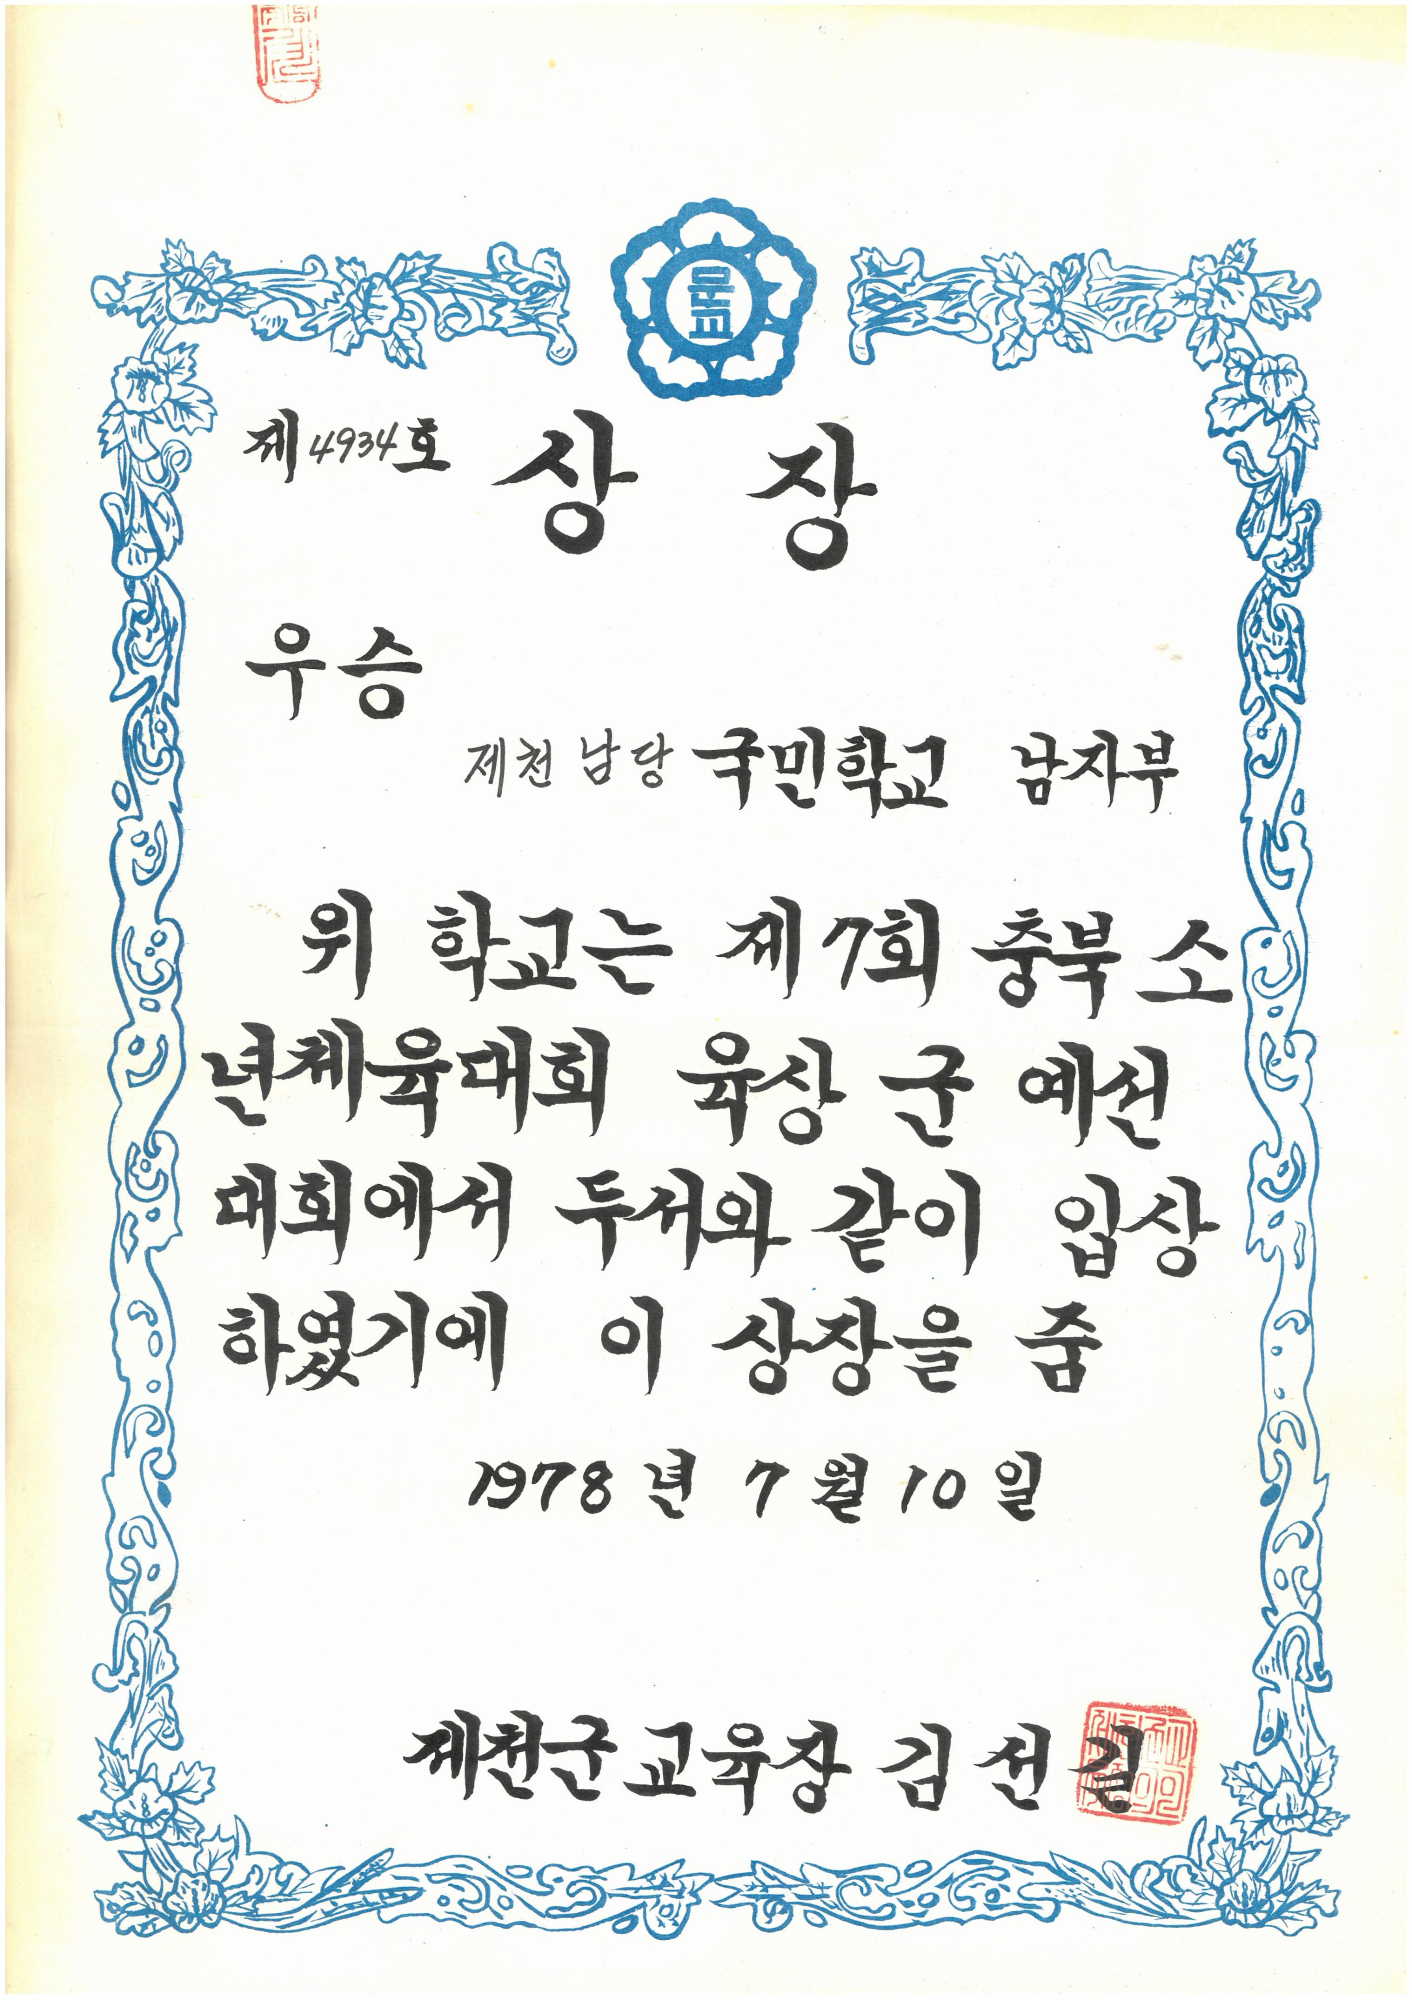 문교
제4934호 상장
우승
제천남당 국민학교 남자부
위 학교는 제7회 충북 소
년체육대회 육상 군 예선
대회에서 두서와 같이 입상
하였기에 이 상장을 줌
1978년 7월 10일
제천군교육장 김선길